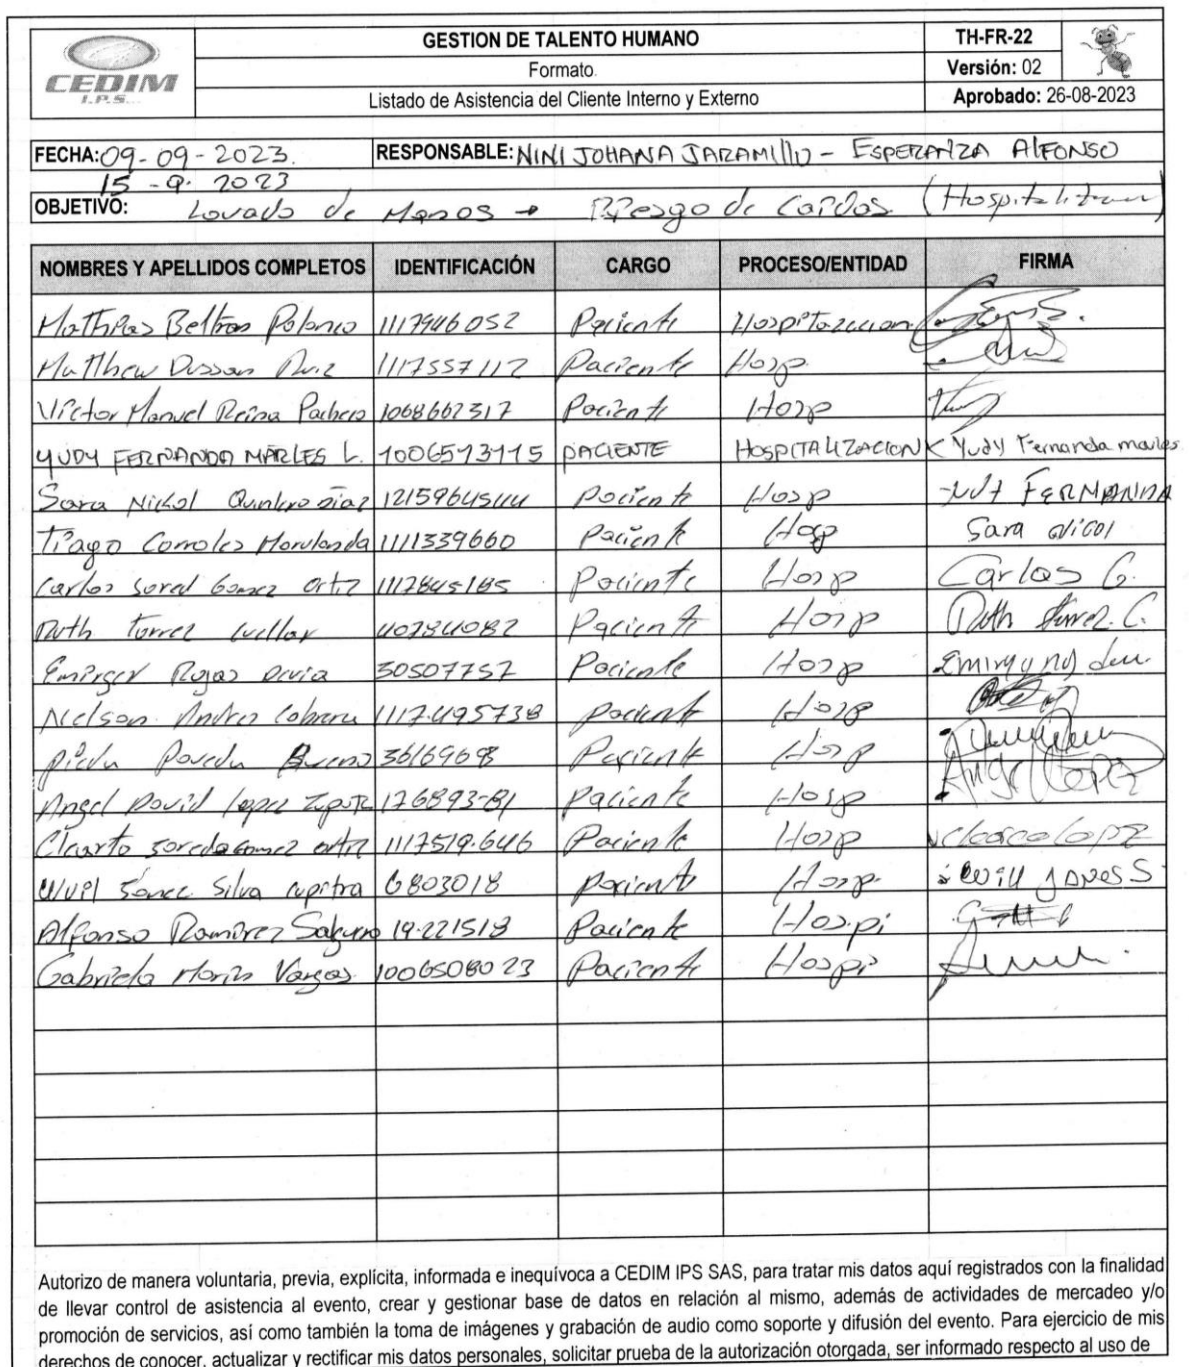 CEDIM
I.P.S.
GESTION DE TALENTO HUMANO
Formato.
Listado de Asistencia del Cliente Interno y Externo
TH-FR-22
Versión: 02
Aprobado: 26-08-2023
FECHA: 09-09-2023. RESPONSABLE: NINI JOHANA JARAMILLO - ESPERANZA AlFONSO
15-9-2023
OBJETIVO: Lavado de Manos → Riesgo de Caídas. (Hospitalización)
NOMBRES Y APELLIDOS COMPLETOS IDENTIFICACIÓN CARGO PROCESO/ENTIDAD FIRMA
Mathias Beltran Polanco 1117946052 Paciente
Matthew Dussan Ruiz 1117557112 Paciente Hosp.
Victor Manuel Reina Pacheco 1068662317 Paciente Hosp
YUDY FERNANDA MARLES L. 1006513115 PACIENTE HOSPITALIZACION Yudy Fernanda marles
Sara Nickol Quintero Diaz Paciente Hosp FERNANDA
Tiago Morulanda 1111339660 Paciente Hosp Sara
Carlos Gomez Ortiz Paciente Hosp Carlos G.
Ruth Torrez Cuellar 40784082 Paciente Hosp Ruth C.
Rojas 30507757 Paciente Hosp
Nelson Andres Cabrera 1117.495738 Paciente Hosp
Poveda Bueno 36169698 Paciente Hosp
Angel David Lopez Paciente Hosp Angel Lopez
Gomez Ortiz 1117519.646 Paciente Hosp
Silva 6803018 Paciente Hosp.
Alfonso Ramirez 19.221518 Paciente Hospi
Gabriela Marin Vargas. 1006508023 Paciente Hospi
Autorizo de manera voluntaria, previa, explícita, informada e inequívoca a CEDIM IPS SAS, para tratar mis datos aquí registrados con la finalidad
de llevar control de asistencia al evento, crear y gestionar base de datos en relación al mismo, además de actividades de mercadeo y/o
promoción de servicios, así como también la toma de imágenes y grabación de audio como soporte y difusión del evento. Para ejercicio de mis
derechos de conocer, actualizar y rectificar mis datos personales, solicitar prueba de la autorización otorgada, ser informado respecto al uso de